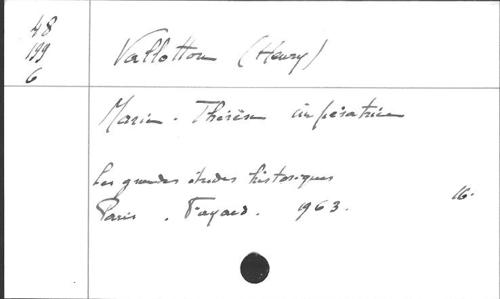 48
199
6
Vallotton (Henry)
Marie-Thérèse impératrice
Les grandes études historiques
Paris. Fayard. 1963. 16.